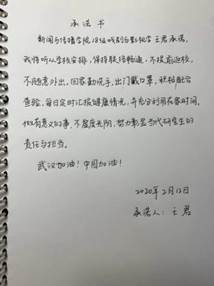 承诺书
新闻与传播学院18级戏剧与影视学王君承诺,
我将听从学校安排,保持联络畅通,不提前返校,
不随意外出,回家勤洗手,出门戴口罩,积极配合
查验,每日定时汇报健康情况,并充分利用居家时间,
做有意义的事,不虚度光阴,努力彰显当代研究生的
责任与担当。
武汉加油!中国加油!
2020年2月12日
承诺人:王君